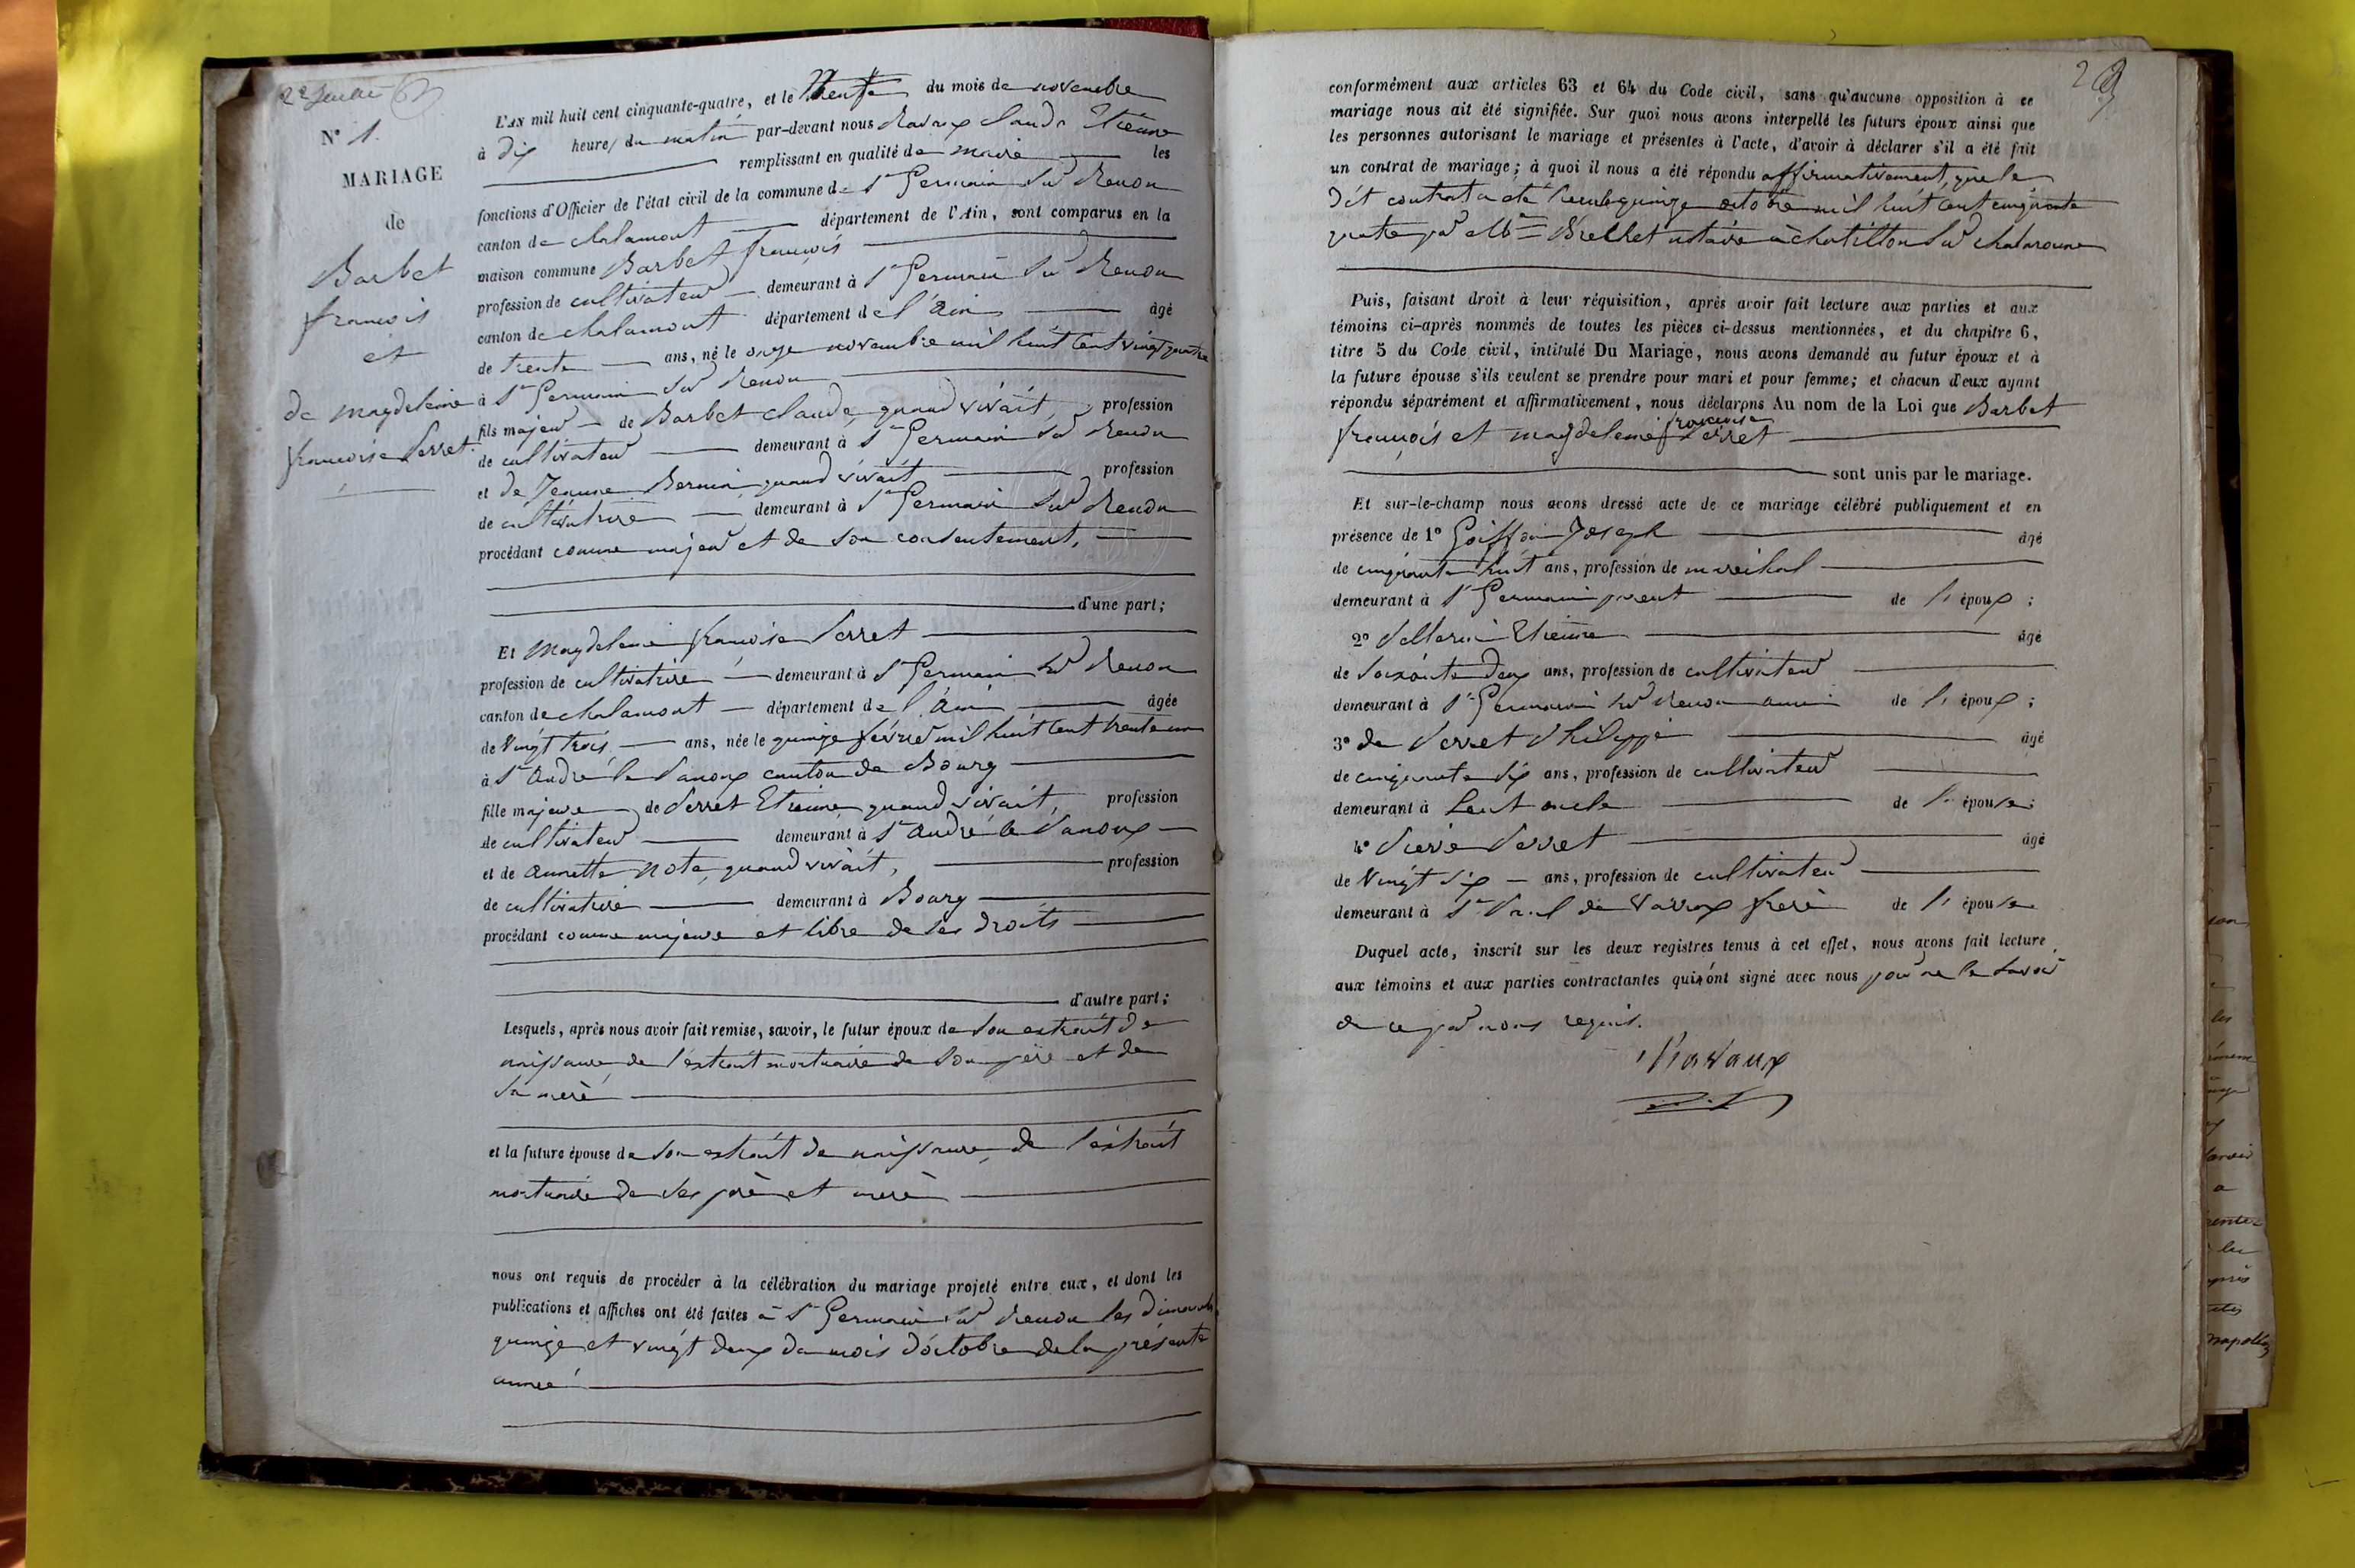 2e feuillet
N° 1.
MARIAGE
de
Barbet
françois
et
de magdeleine
françoise Perret.
L'AN mil huit cent cinquante-quatre, et le trente du mois de novembre
à dix heures du matin par-devant nous Ravaux claude Etienne
remplissant en qualité de maire les
fonctions d'Officier de l'état civil de la commune de St Germain sur Renon
canton de chalamont département de l'Ain, sont comparus en la
maison commune Barbet françois
profession de cultivateur demeurant à St Germain sur Renon
canton de chalamont département de l'Ain âgé
de trente ans, né le onze novembre mil huit cent vingt quatre
à St Germain sur Renon
fils majeur de Barbet claude, quand vivait, profession
de cultivateur demeurant à St Germain sur Renon
et de Jeanne quand vivait profession
de cultivatrice demeurant à St Germain sur Renon
procédant comme majeur et de son consentement,
d'une part;
Et Magdeleine françoise Perret
profession de cultivatrice demeurant à St Germain sur Renon
canton de chalamont département de l'Ain âgée
de Vingt trois ans, née le quinze février mil huit cent trente un
à St André le Panoux canton de Bourg
fille majeure de Perret Etienne, quand vivait, profession
de cultivateur demeurant à St André le Panoux
et de annette Note, quand vivait, profession
de cultivatrice demeurant à Bourg
procédant comme majeure et libre de ses droits
d'autre part;
Lesquels, après nous avoir fait remise, savoir, le futur époux de son extrait de
naissance, de l'extrait mortuaire de son père et de
sa mère
et la future épouse de son extrait de naissance, de l'extrait
mortuaire de ses père et mère
nous ont requis de procéder à la célébration du mariage projeté entre eux, et dont les
publications et affiches ont été faites à St Germain sur Renon les dimanches
quinze et vingt deux du mois d'octobre de la présente
année
conformément aux articles 63 et 64 du Code civil, sans qu'aucune opposition à ce
mariage nous ait été signifiée. Sur quoi nous avons interpellé les futurs époux ainsi que
les personnes autorisant le mariage et présentes à l'acte, d'avoir à déclarer s'il a été fait
un contrat de mariage; à quoi il nous a été répondu affirmativement, que le
dit contrat a été quinze octobre mil huit cent cinquante
quatre par Me Brelhet notaire à chatillon sur chalaronne
Puis, faisant droit à leur réquisition, après avoir fait lecture aux parties et aux
témoins ci-après nommés de toutes les pièces ci-dessus mentionnées, et du chapitre 6,
titre 5 du Code civil, intitulé Du Mariage, nous avons demandé au futur époux et à
la future épouse s'ils veulent se prendre pour mari et pour femme; et chacun d'eux ayant
répondu séparément et affirmativement, nous déclarons Au nom de la Loi que Barbet
françois et magdeleine françoise Perret
sont unis par le mariage.
Et sur-le-champ nous avons dressé acte de ce mariage célébré publiquement et en
présence de 1° Goiffon Joseph âgé
de cinquante huit ans, profession de marechal
demeurant à St Germain parent de l'époux;
2° Pellerin Etienne âgé
de soixante deux ans, profession de cultivateur
demeurant à St Germain sur Renon ami de l'époux;
3° de Perret Philippe âgé
de cinquante six ans, profession de cultivateur
demeurant à Lent oncle de l'épouse;
4° Pierre Perret âgé
de Vingt six ans, profession de cultivateur
demeurant à St Paul de Varax frere de l'épouse
Duquel acte, inscrit sur les deux registres tenus à cet effet, nous avons fait lecture
aux témoins et aux parties contractantes qui n'ont signé avec nous pour ne le savoir
de ce par nous requis.
Ravaux